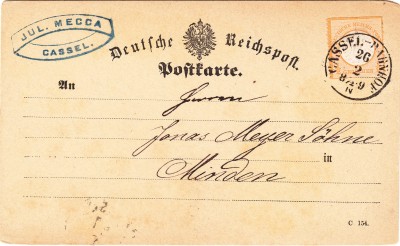 JUL. MECCA
CASSEL.
Deutsche Reichspost.
Postkarte.
CASSEL-BAHNHOF
26
2
8½-9
N
An
Herrn
Jonas Meyer Söhne
in
Minden
C 154.